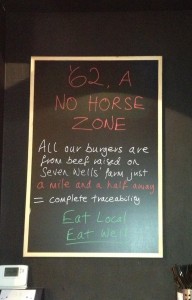 '62, A
NO HORSE
ZONE
All our burgers are
from beef raised on
Seven Wells' farm just
a mile and a half away
= complete traceability
Eat Local
Eat Well